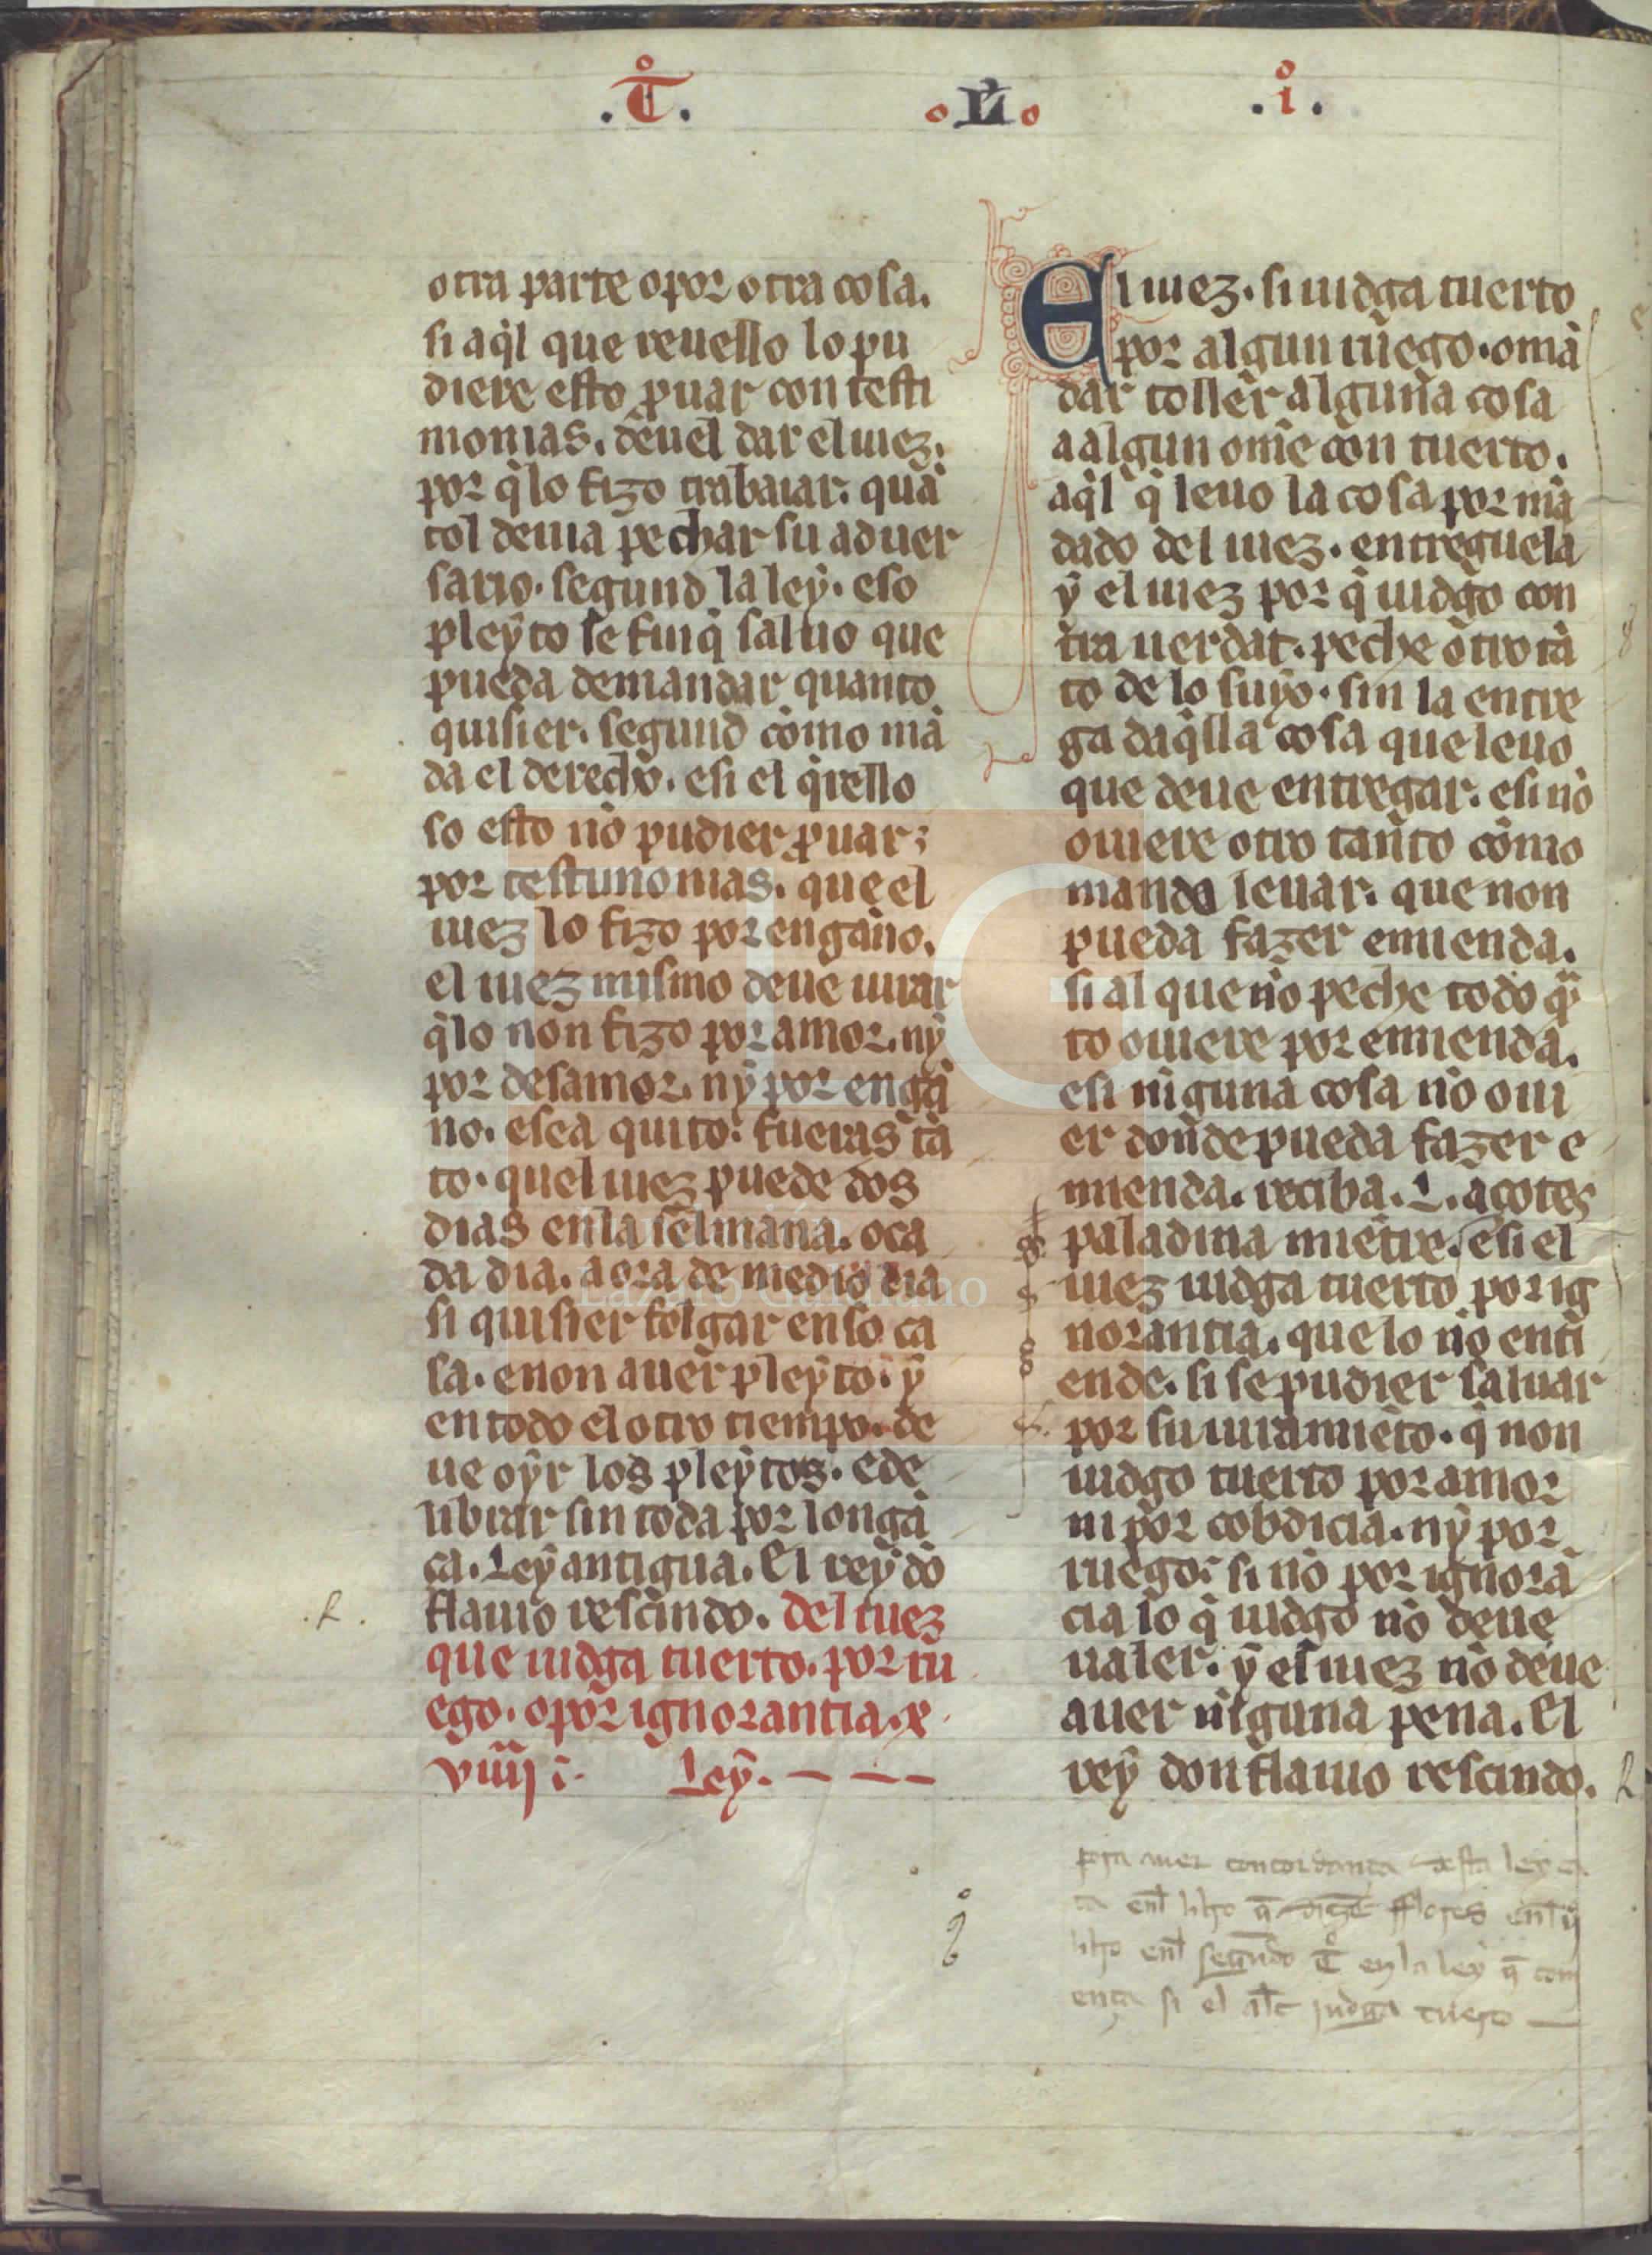 .T̊. .Ii̊. .i̊.
otra parte o por otra cosa.
si aq̇l que reuello lo pu
diere esto ꝓuar con testi
monias. deuel dar el iuez.
por q̇ lo fizo trabaiar. quā
tol deuia pechar su aduer
sario. segund la leẏ. e so
pleẏto se finq̇ saluo que
pueda demandar quanto
quisier. segund como mā
da el derecho. e si el q̇rello
so esto nō pudier ꝓuar;
por testimonias. que el
iuez lo fizo por engano.
el iuez mismo deue iurar
q̇lo non fizo por amor. nẏ
por desamor. nẏ por enga
no. e sea quito. fueras tā
to. quel iuez puede dos
dias en la selmana. o ca
da dia. a ora de medio dia
si quisier folgar en so ca
sa. e non auer pleẏto. ẏ
en todo el otro tiempo. de
ue oẏr los pleẏtos. e de
librar sin toda por longā
ca. Leẏ antigua. El reẏ dō
flauio rescindo. del iuez
que iudga tuerto. por ru
ego. o por ignorantia. x
viiij ī. Leẏ.
El iuez. si iudga tuerto
por algun ruego. o mā
dar toller alguna cosa
a algun ome con tuerto.
aq̇l q̇ leuo la cosa por mā
dado del iuez. entreguela
ẏ el iuez por q̇ iudgo con
tra uerdat. peche otro tā
to de lo suẏo. sin la entre
ga daq̇lla cosa que leuo
que deue entregar. e si nō
ouiere otro tanto como
mando leuar. que non
pueda fazer emienda.
si al que nō peche todo qᵃ̄
to ouiere por emienda.
e si niguna cosa nō oui
er donde pueda fazer e
mienda. reciba. L. açotes
paladina mietre. e si el
iuez iudga tuerto por ig
norantia. que lo nō enti
ende. si se pudier saluar
por su iuramiēto. q̇ non
iudgo tuerto por amor
ni por cobdicia. nẏ por
ruego. si nō por ignorā
cia lo q̇ iudgo nō deue
ualer. ẏ el iuez nō deue
auer niguna pena. El
reẏ don flauio rescindo.
pora auer concordança desta ley
libro q̄ dizē flores enl
libro enl segundo T̊ en la ley q̄ com
ença si el alc̄ judga tuerto